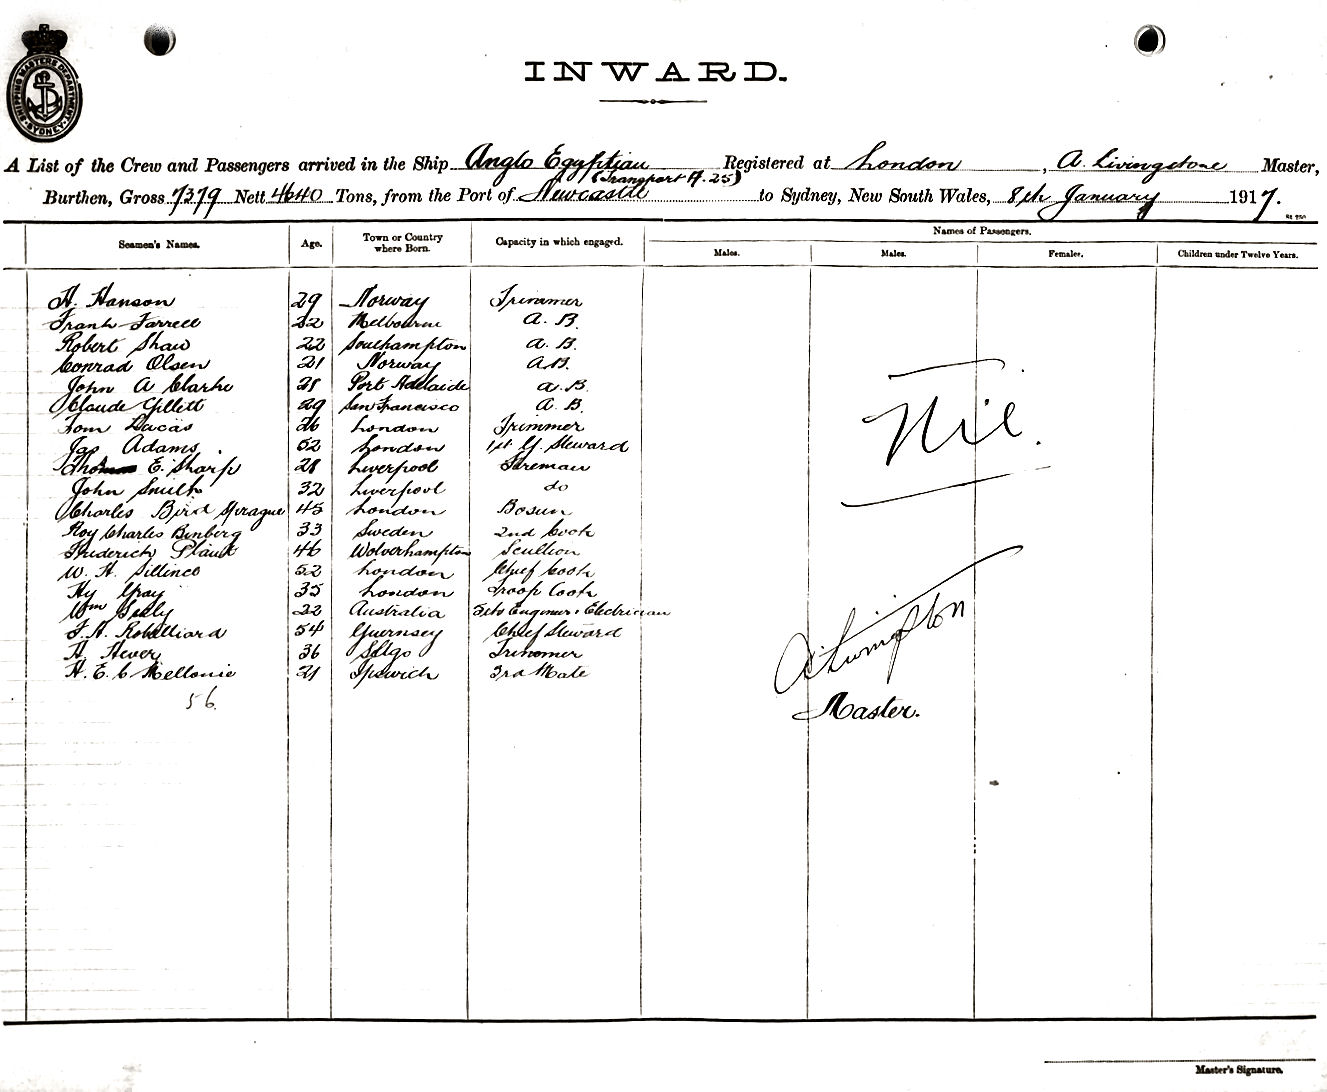 SHIPPING MASTERS DEPARTMENT SYDNEY
INWARD.
A List of the Crew and Passengers arrived in the Ship Anglo Egyptian Registered at London, A. Livingstone Master,
(Transport A.25)
Burthen, Gross 7379 Nett 4640 Tons, from the Port of Newcastle to Sydney, New South Wales, 8th January 1917.
Seamen's Names. Age. Town or Country where Born. Capacity in which engaged. Names of Passengers.
Males. Males. Females. Children under Twelve Years.
H. Hanson 29 Norway Trimmer
Frank Farrell 22 Melbourne A. B.
Robert Shaw 22 Southampton A. B.
Conrad Olsen 21 Norway A.B.
John A Clarke 28 Port Adelaide A. B.
Claude Gillett 29 San Francisco A. B.
Tom Lucas 26 London Trimmer
Jas Adams. 52 London 1st G. Steward
E. Sharp 28 Liverpool Fireman
John Smith 32 Liverpool do
Charles Bird Sprague 45 London Bosun
Roy Charles Binberg 33 Sweden 2nd Cook
Frederich Plant 46 Wolverhampton Scullion
W. H. 52 London Chief Cook
Hy Gray 35 London Troop Cook
Wm 22 Australia 5th Engineer & Electrician
F. A. Robilliard 54 Guernsey Chief Steward
H. Hever 36 Sligo Trimmer
H. E. C Mellonie 21 Ipswich 3rd Mate
56.
Nil.
A Livingston
Master.
Master's Signature.